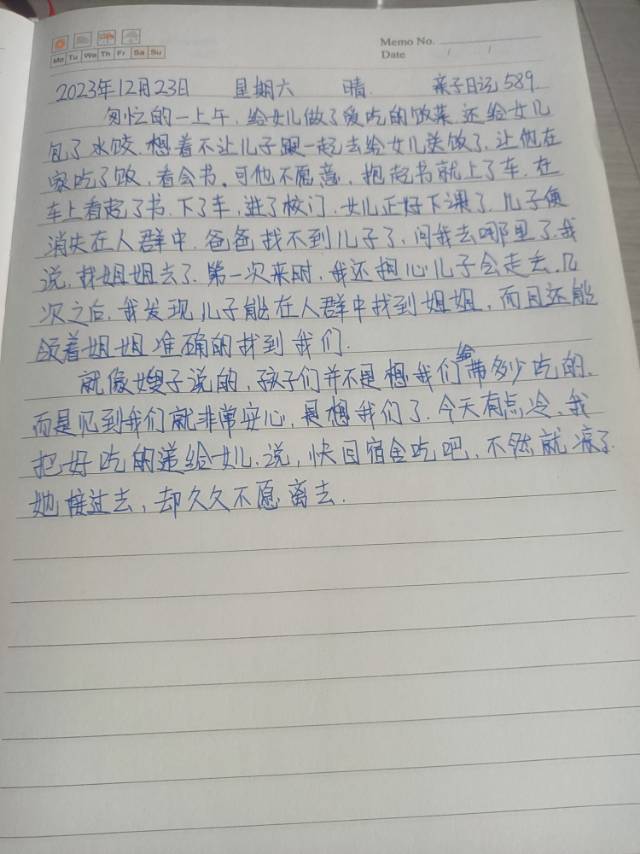 Memo No.
Mo Tu We Th Fr Sa Su
Date / /
2023年12月23日 星期六 晴 亲子日记589
匆忙的一上午,给女儿做了爱吃的饭菜,还给女儿
包了水饺,想着不让儿子跟一起去给女儿送饭了,让他在
家吃了饭,看会书。可他不愿意,抱起书就上了车,在
车上看起了书,下了车,进了校门,女儿正好下课了,儿子便
消失在人群中,爸爸找不到儿子了,问我去哪里了,我
说,找姐姐去了,第一次来时,我还担心儿子会走丢,几
次之后,我发现儿子能在人群中找到姐姐,而且还能
领着姐姐准确的找到我们.
就像嫂子说的,孩子们并不是想我们给带多少吃的,
而是见到我们就非常安心,是想我们了.今天有点冷,我
把好吃的递给女儿,说,快回宿舍吃吧,不然就凉了.
她接过去,却久久不愿离去.